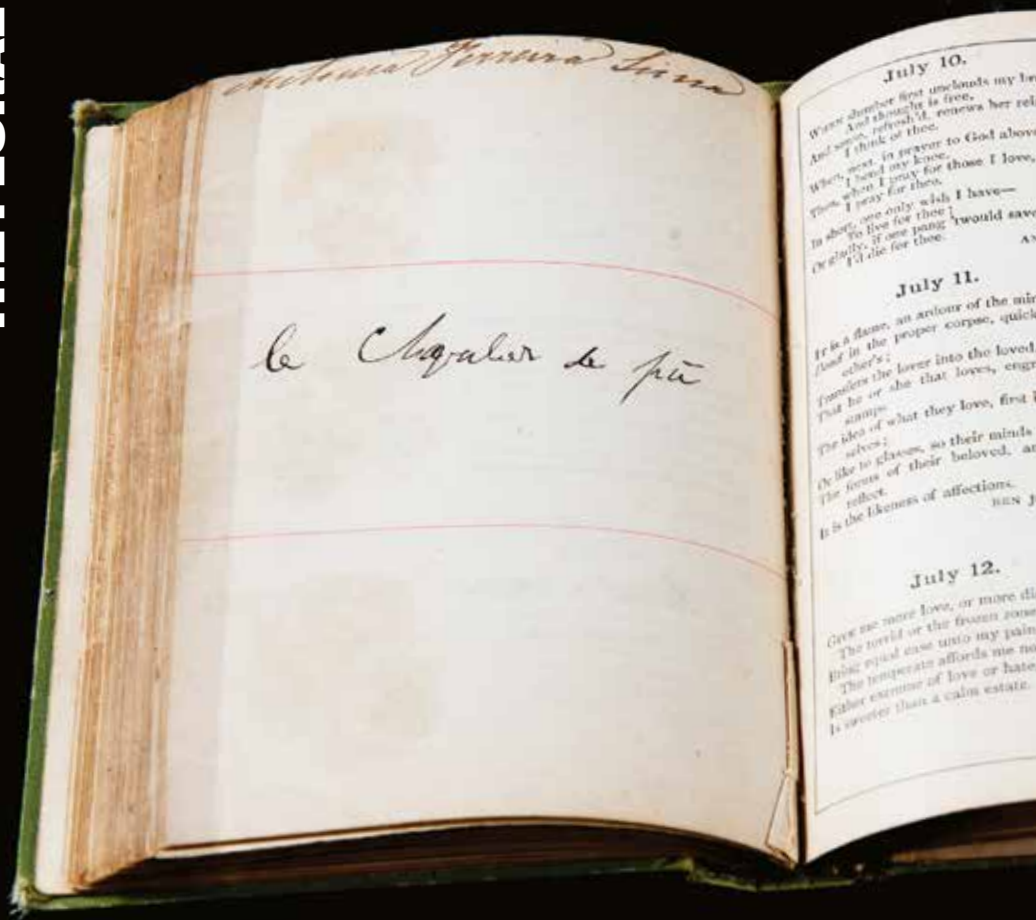 Antonia Ferreira Lima
le Chevalier de
July 10.
WHEN slumber first unclouds my
And thought is free,
And sense, refresh'd, renews her
I think of thee.
When, next, in prayer to God above
I bend my knee,
Then, when I pray for those I love,
I pray for thee.
In short, one only wish I have—
To live for thee;
Or gladly, if one pang 'twould save
I'd die for thee.
July 11.
IT is a flame, an ardour of the
Dead in the proper corpse,
other's;
Transfers the lover into the loved,
That he or she that loves,
stamps
The idea of what they love, first
selves;
Or like to glasses, so their minds
The forms of their beloved,
reflect.
It is the likeness of affections.
BEN
July 12.
GIVE me more love, or more
The torrid or the frozen
Bring equal ease unto my
The temperate affords me
Either extreme of love or
Is sweeter than a calm estate.